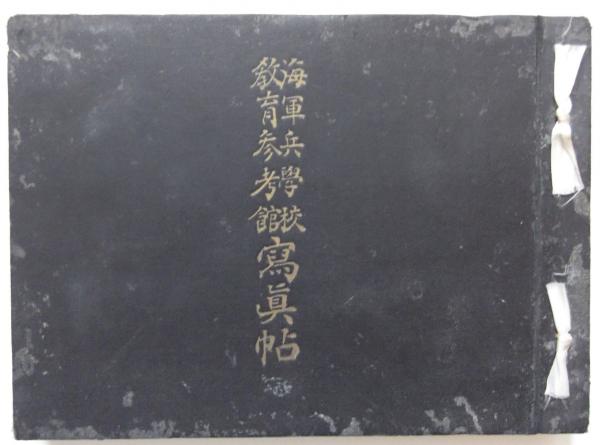 海軍兵學校
敎育参考館
寫眞帖